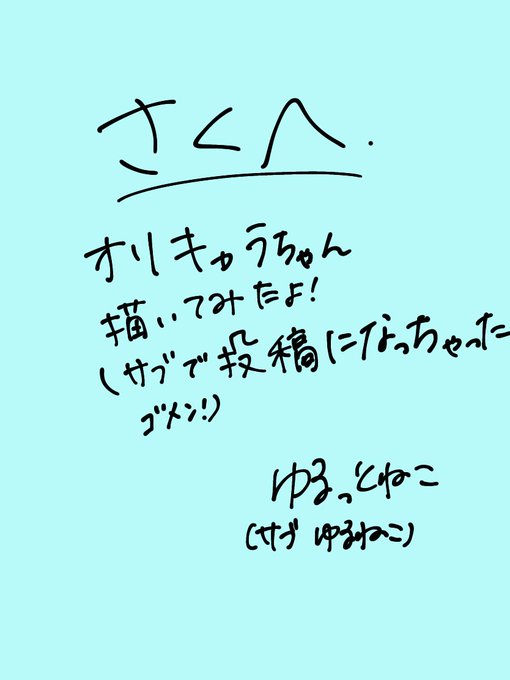 さくへ.
オリキャラちゃん
描いてみたよ!
(サブで投稿になっちゃった
ゴメン!)
ゆるっとねこ
(サブ ゆるねこ)